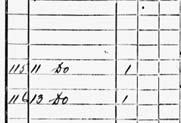 115 11 Do 1
116 13 Do 1